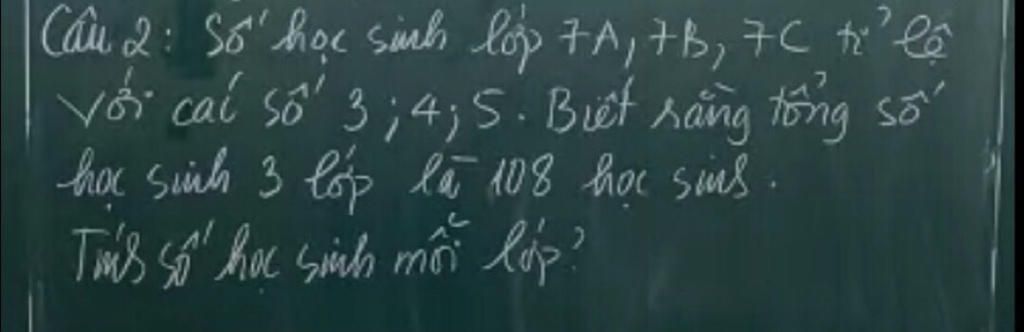 Câu 2: Số học sinh lớp 7A, 7B, 7C tỉ lệ
với các số 3; 4; 5. Biết rằng tổng số
học sinh 3 lớp là 108 học sinh.
Tính số học sinh mỗi lớp?